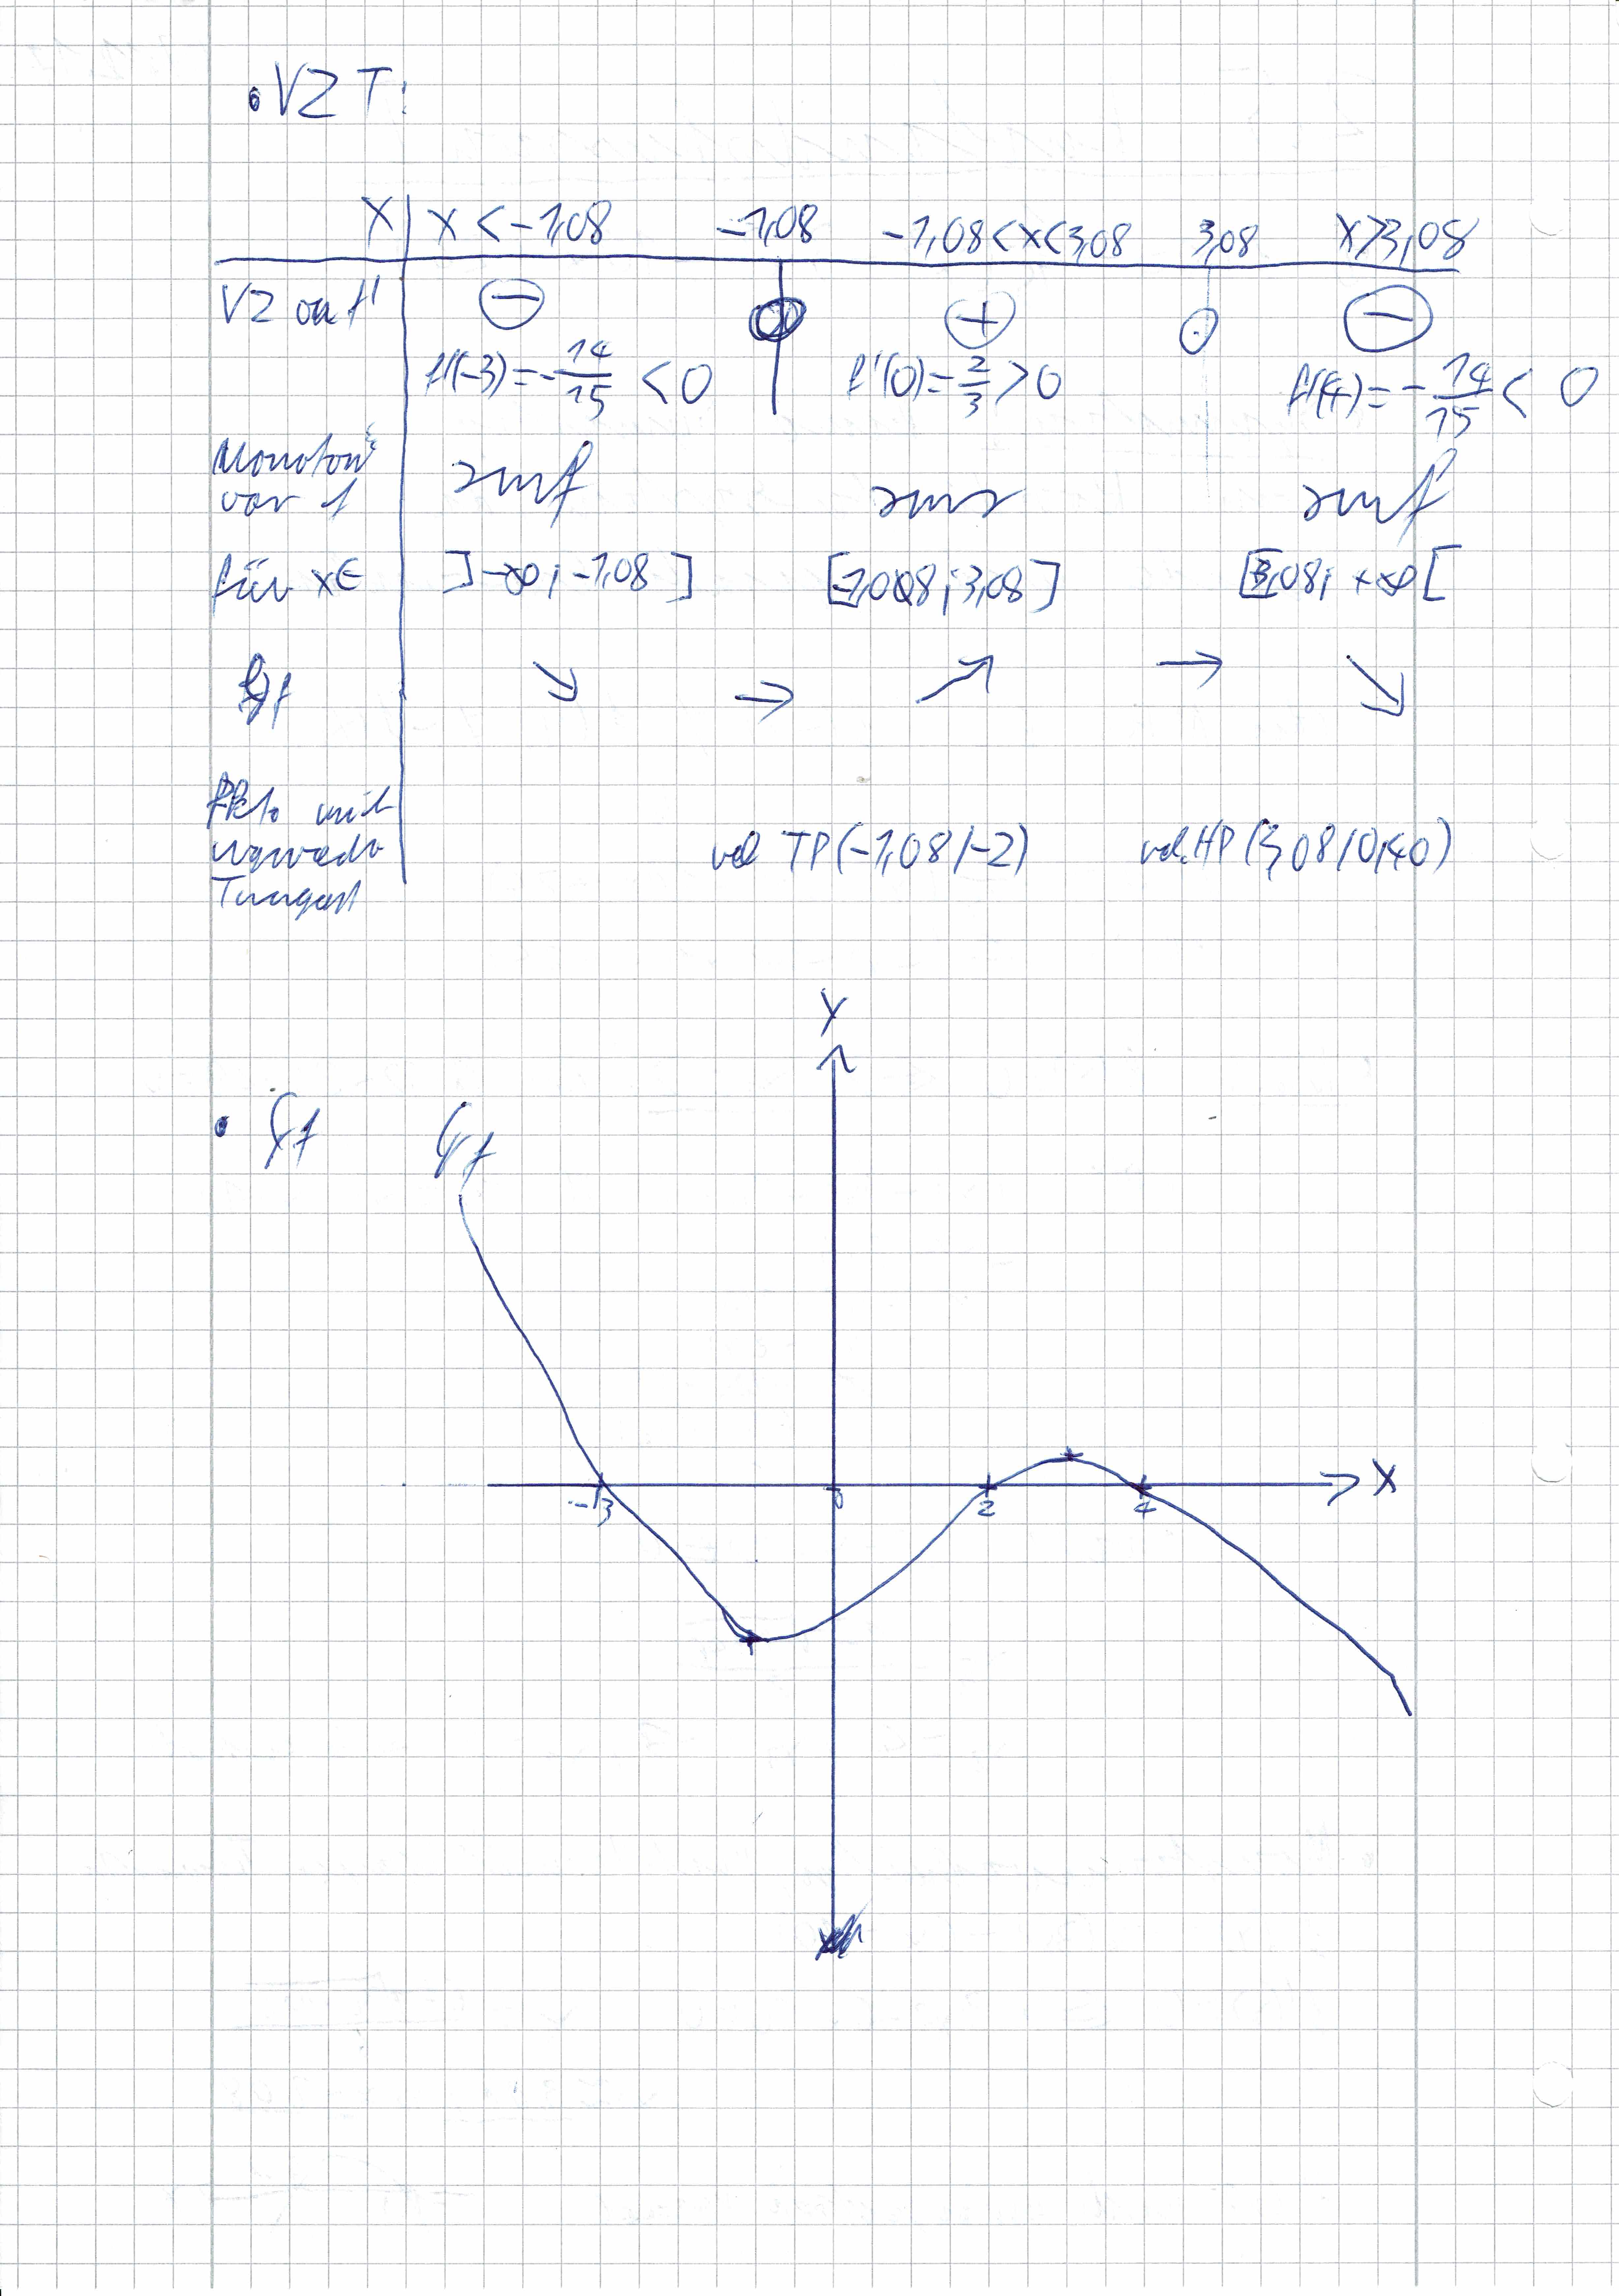 • VZT:
X | x < -1,08   -1,08   -1,08 < x < 3,08   3,08   x > 3,08
VZ von f' | ⊖   0   ⊕   0   ⊖
f'(-3) = -14/15 < 0   f'(0) = 2/3 > 0   f'(4) = -14/15 < 0
Monotonie   smf   sms   smf
von f
für x∈   ]-∞; -1,08]   [-1,08; 3,08]   [3,08; +∞[
Gf   ↘   →   ↗   →   ↘
Pkte mit   rel TP(-1,08/-2)   rel. HP(3,08/0,40)
waagrechter
Tangente
Y
• Gf   Gf
-3   0   2   4   X